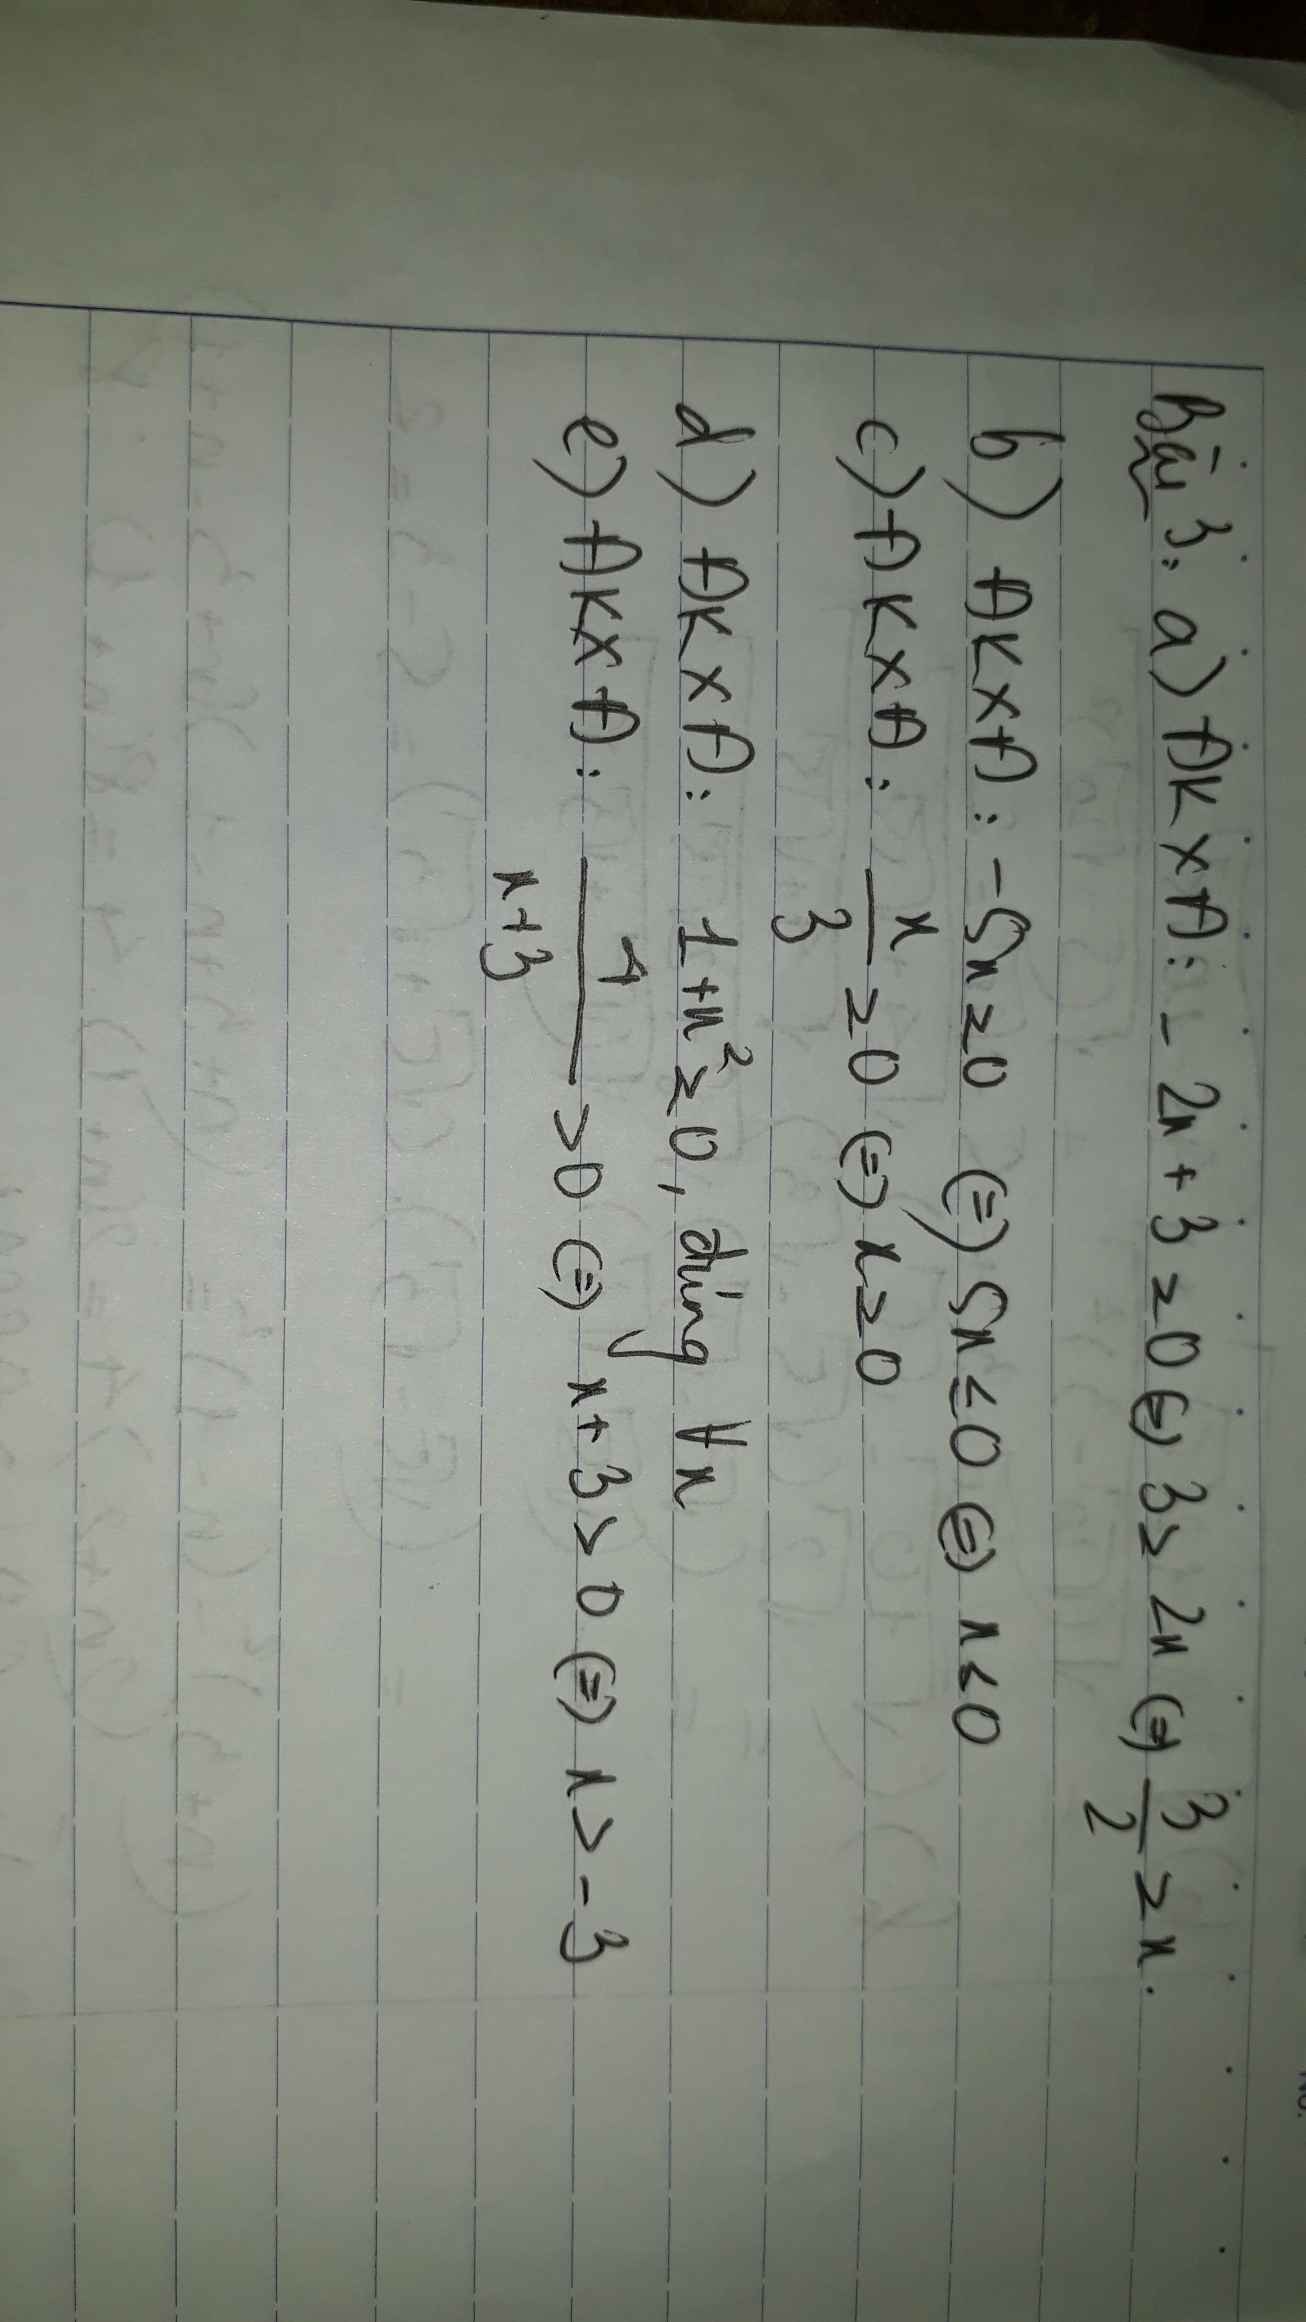 Bài 3: a) ĐKXĐ: - 2x + 3 ≥ 0 (=) 3 ≥ 2x (=) 3/2 ≥ x.
b) ĐKXĐ: -5x ≥ 0 (=) 5x ≤ 0 (=) x ≤ 0
c) ĐKXĐ: x/3 ≥ 0 (=) x ≥ 0
d) ĐKXĐ: 1+x² ≥ 0, đúng ∀x
e) ĐKXĐ: 1/(x+3) > 0 (=) x + 3 > 0 (=) x > -3
No.